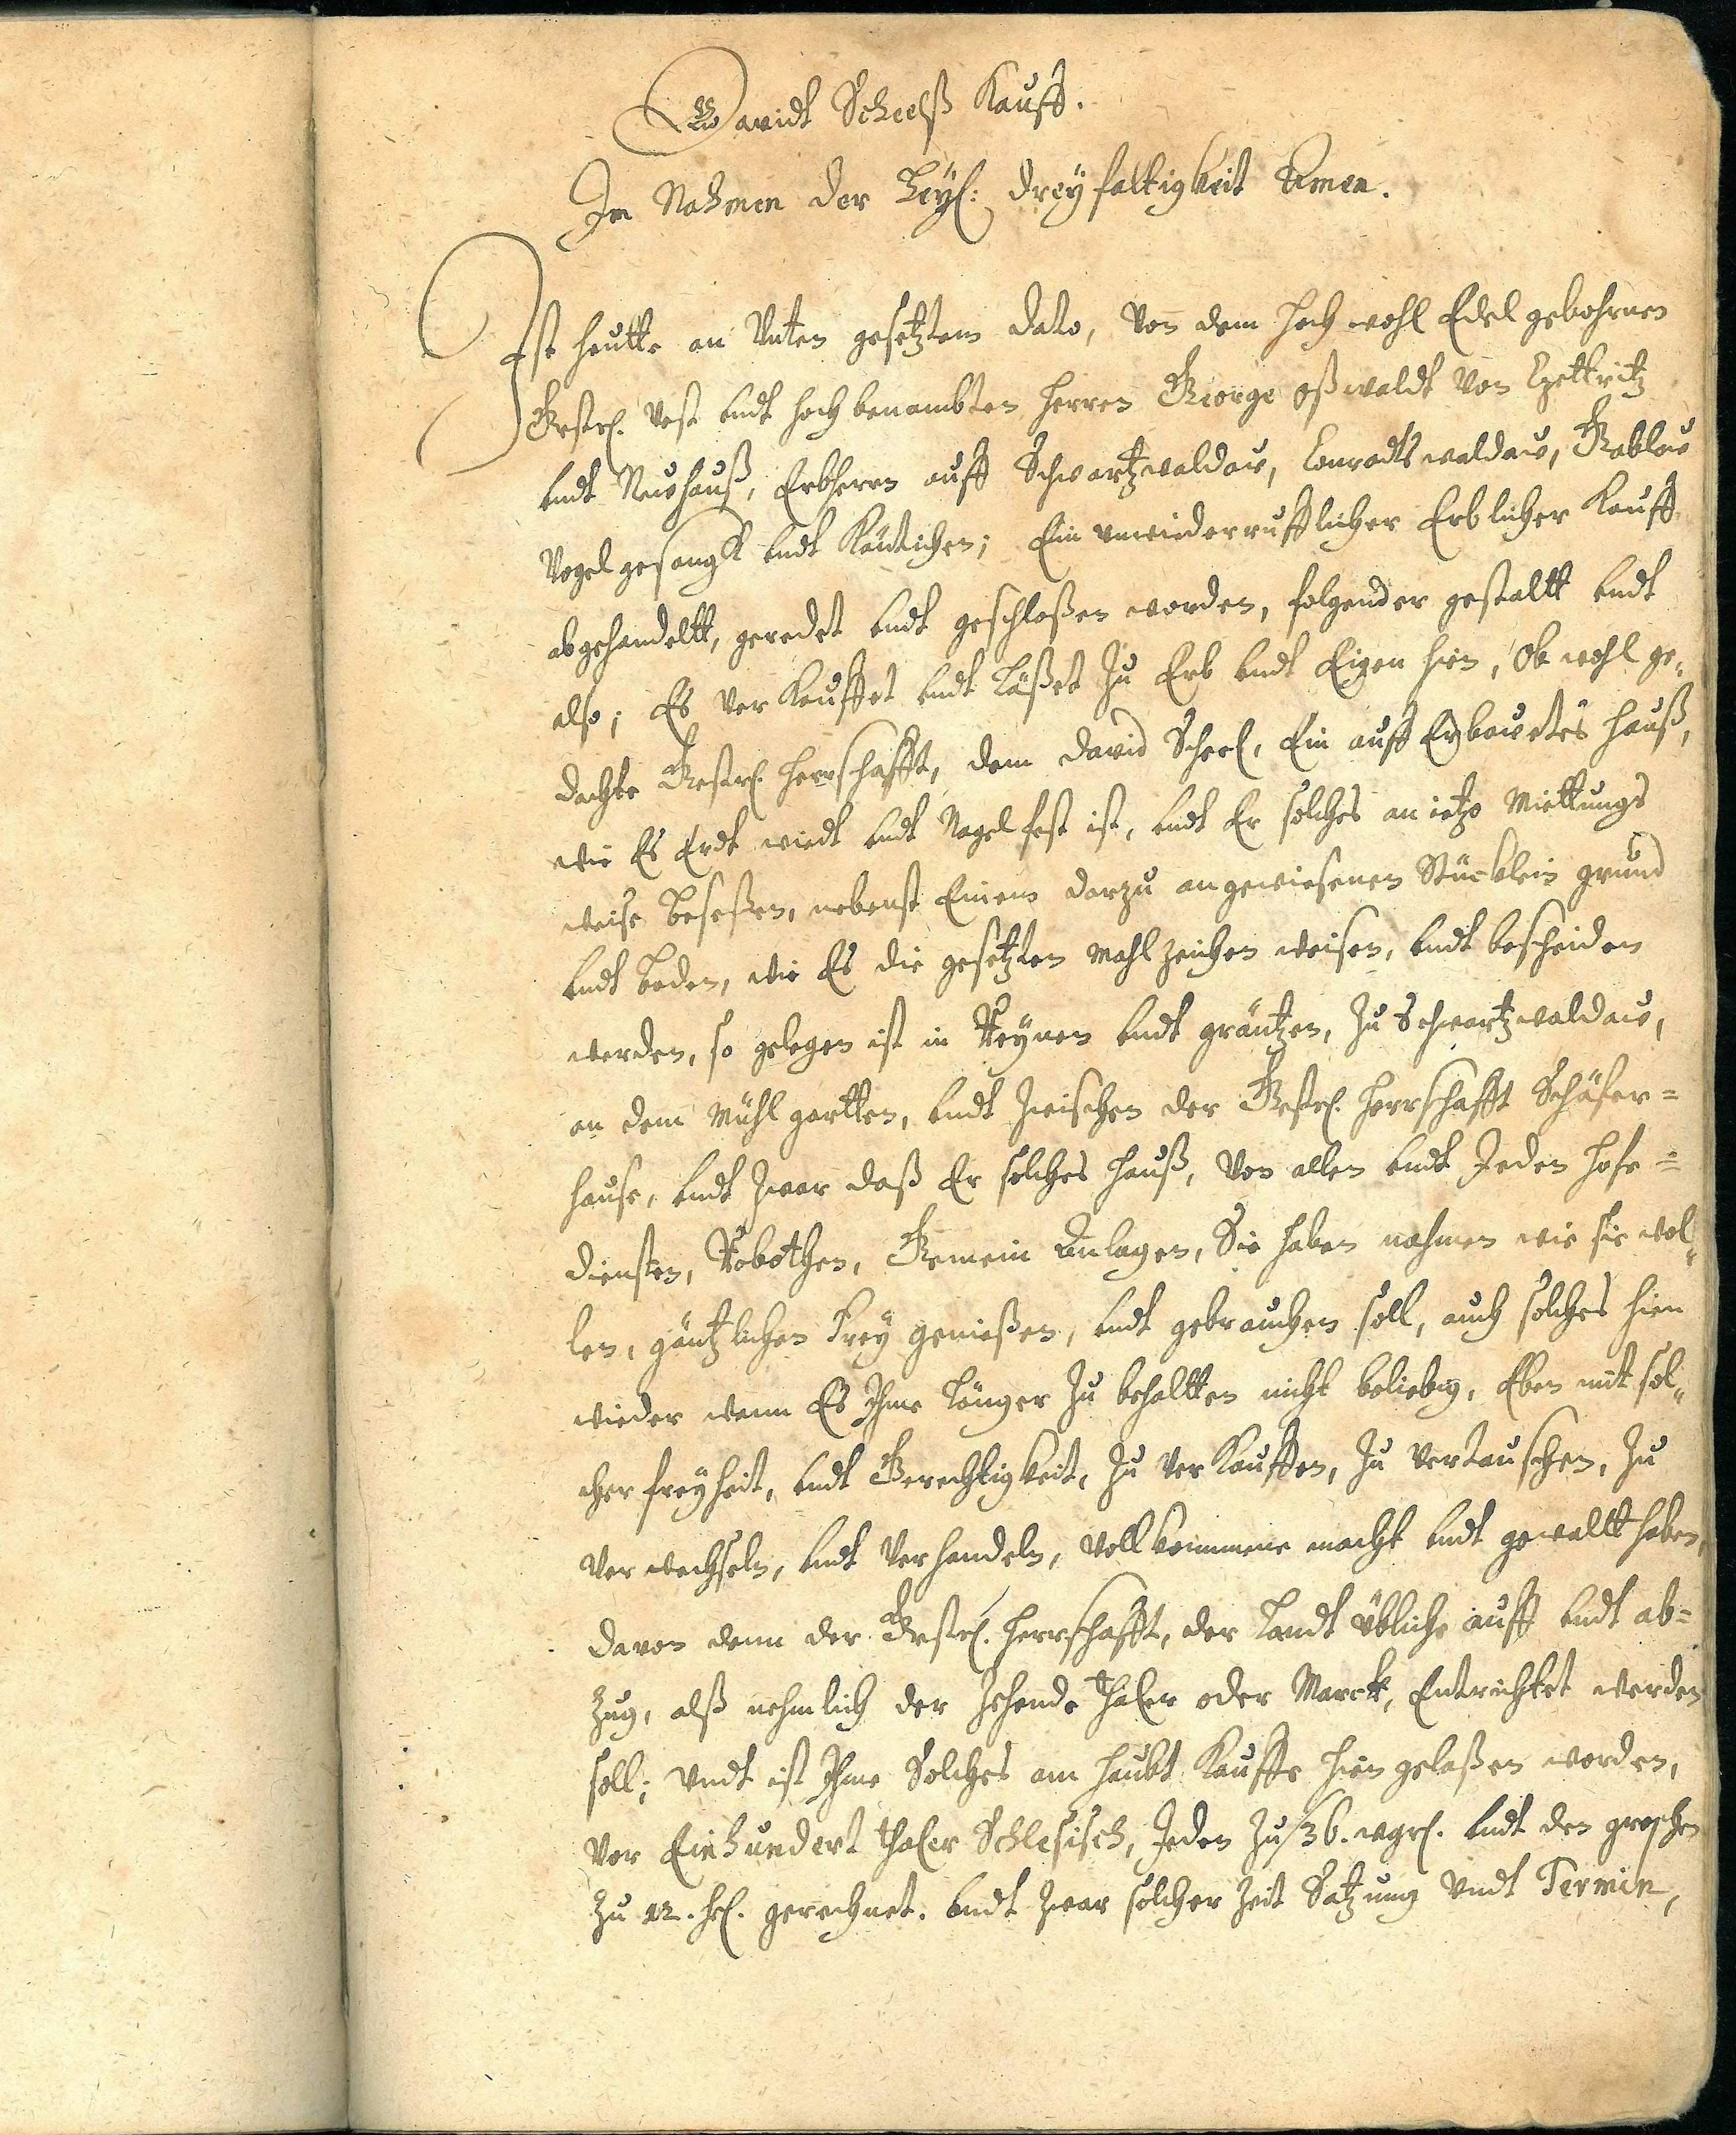 Davidt Scheelß Kauff.
Im Nahmen der Heyl: dreyfaltigkeit Amen.
Ist heutte an Unten gesetztem dato, Von dem hoch wohl Edel gebohrnen
Gestr. Vest undt hoch benambten Herren George Oßwaldt Von Czettritz
undt Neuhauß, Erbherrn auff Schwartzwaldau, Conradtswaldau, Gablau
Vogelgesangk undt Käutichen; Ein unwiederrufflicher Erblicher Kauff
abgehandeltt, geredet undt geschloßen worden, folgender gestaltt undt
also; Es Verkauffet undt Läßet Zu Erb undt Eigen hin, Ob wohl ge-
dachte Gestr. Herrschafft, dem David Scheel, Ein auff Erbauetes Hauß,
wie Es Erdt wiedt undt Nagelfest ist, undt Er solches an ietzo Miettungs
weise beseßen, nebenst Einem darzu angewiesenen Stücklein grund
undt boden, wie Es die gesetzten Mahlzeichen weisen, undt bescheiden
werden, so gelegen ist in Reynen undt gräntzen, Zu Schwartzwaldau,
an dem Mühlgartten, undt Zwischen der Gestr. Herrschafft Schäfer=
hause, undt Zwar daß Er solches Hauß, Von allen undt Jeden Hofe=
diensten, Robothen, Gemein Anlagen, Sie haben nahmen wie sie wol-
len, gäntzlichen Frey genießen, undt gebrauchen soll, auch solches hien
wieder wann Es Ihme Länger Zu behaltten nicht beliebig, Eben mit sol-
cher freyheit, undt Gerechtigkeit, Zu Verkauffen, Zu Vertauschen, Zu
Verwechseln, undt Verhandeln, Vollkommene macht undt gewaltt haben,
davon denn der Gestr. Herrschafft, der Landt übliche auff undt ab=
zug, alß nehmlich der Zehende Thaler oder Marck, Entrichtet werden
soll; Undt ist Ihme Solches am Haubt Kauffe hien gelaßen worden,
Vor Einhundert Thaler Schlesisch, Jeden Zu 36. wgrl. undt den groschen
Zu 12. hl. gerechnet. Undt Zwar solcher Zeit Satzung Undt Termin,